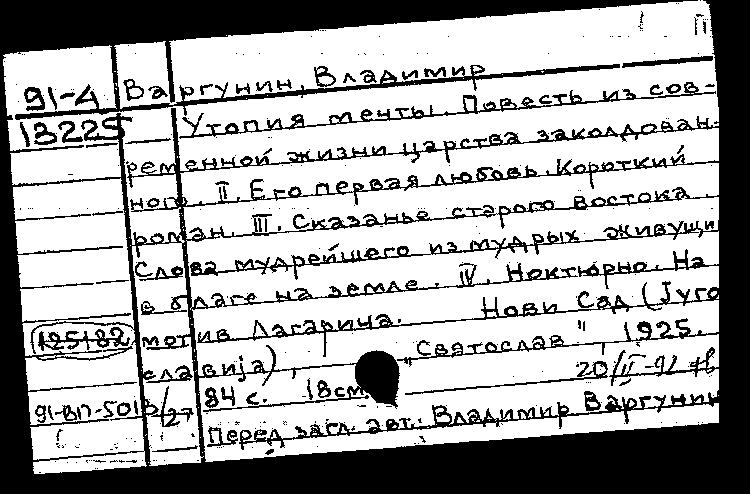 III
91-4 Варгунин, Владимир
13225 Утопия мечты. Повесть из сов-
ременной жизни царства заколдован-
ного. II. Его первая любовь. Короткий
роман. III. Сказанье старого востока.
Слова мудрейшего из мудрых живущи
в благе на земле. IV. Ноктюрно. На
125182 мотив Лагарича. Нови Сад (Југо
славија), "Святослав", 1925.
84 с. 18см. 20/II-92
91-ВП-5013/27
Перед загл. авт.: Владимир Варгунин